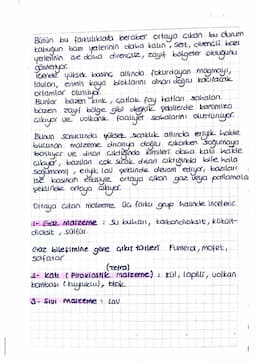 Bütün bu farklılıklarla beraber ortaya çıkan bu durum
kabuğun bazı yerlerinin daha kalın, sert, dirençli bazı
yerlerinin ise daha dirençsiz, zayıf bölgeler olduğunu
gösteriyor.
yüksek basınç altında fokurdayan magmayı,
kaya bloklarını dışarı doğru
ortamlar oluşuyor.
Bunlar bazen kırık, çatlak fay hatları
bazen zayıf bölge gibi şekillerde karşımıza
çıkıyor ve volkanik faaliyet sahalarını oluşturuyor.
Bunun sonucunda yüksek sıcaklık altında eriyik halde
bulunan malzeme dışarıya doğru çıkarken soğumaya
başlıyor ve dışarı çıktığında kimileri daha katı halde
çıkıyor, bazıları çok sıcak dışarı çıktığında bile hala
soğumamış, eriyik lav şeklinde devam ediyor, bazıları
ise basıncın etkisiyle ortaya çıkan gaz veya parlamala
şeklinde ortaya çıkıyor.
Ortaya çıkan malzeme üç farklı grup halinde incelenir.
1- Gaz malzeme : Su buharı, karbondioksit, kükürt-
dioksit, sülfür.
Gaz bileşimine göre çıkış türleri: Fümerol, mofet,
solfatar
(Tefra)
2- Katı (Piroklastik malzeme) : kül, lapilli, volkan
bombası (kuyruklu), blok
3- Sıvı malzeme : Lav